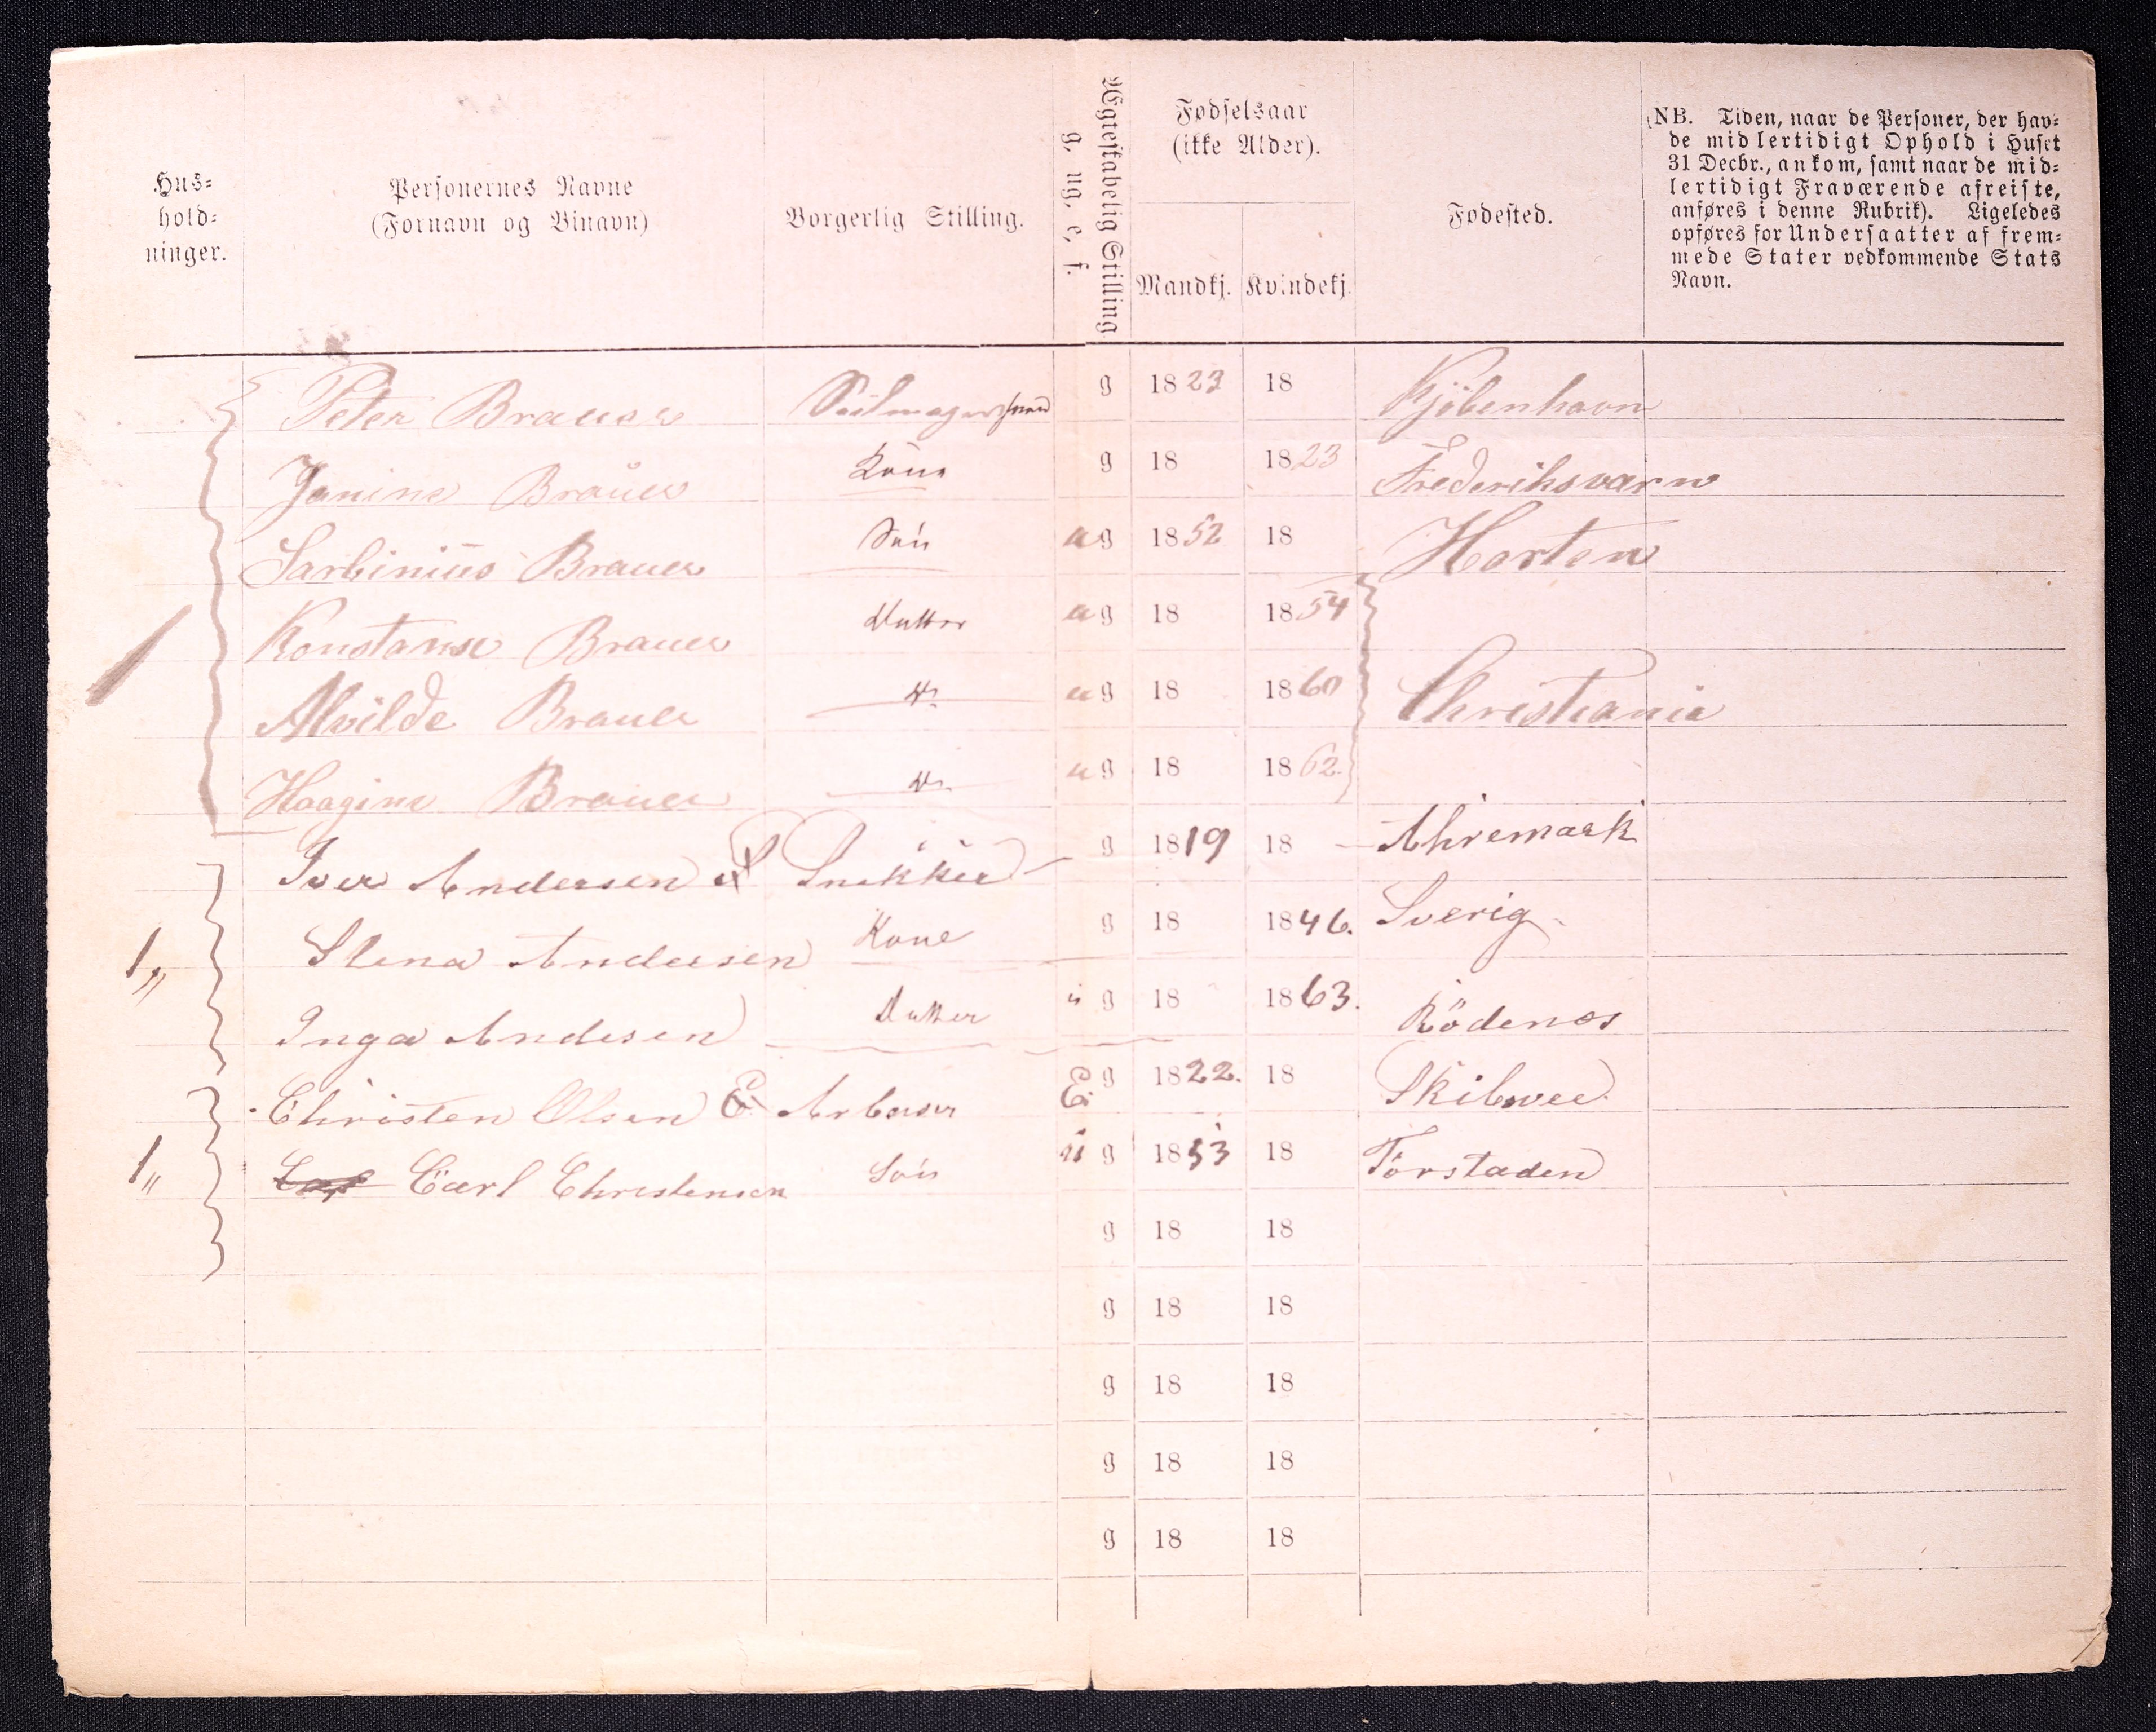 Hus-
hold-
ninger.
Personernes Navne
(Fornavn og Binavn)
Borgerlig Stilling.
Ægteskabelig Stilling
g, ug, e, f.
Fødselsaar
(ikke Alder).
Mandkj. Kvindekj.
Fødested.
(NB. Tiden, naar de Personer, der hav-
de midlertidigt Ophold i Huset
31 Decbr., ankom, samt naar de mid-
lertidigt Fraværende afreiste,
anføres i denne Rubrik). Ligeledes
opføres for Undersaatter af frem-
mede Stater vedkommende Stats
Navn.
Peter Brauer Seilmagersvend g 1823 18 Kjöbenhavn
Janine Braüer Kone g 18 1823 Frederiksværn
Sarbinius Brauer Sön ug 1852 18 Horten
Konstanse Brauer Datter ug 18 1854
Alvilde Brauer Do ug 18 1860 Christiania
Haagine Brauer Do ug 18 1862
Iver Andersen Snekker g 1819 18 Ahremark
1„ Stena Andersen Kone g 18 1846. Sverig
Inga Andesen Datter u g 18 1863. Rödenes
Christen Olsen E Arbeier E g 1822. 18
1„ Carl Christensen Sön u g 1853 18 Torstaden
g 18 18
g 18 18
g 18 18
g 18 18
g 18 18